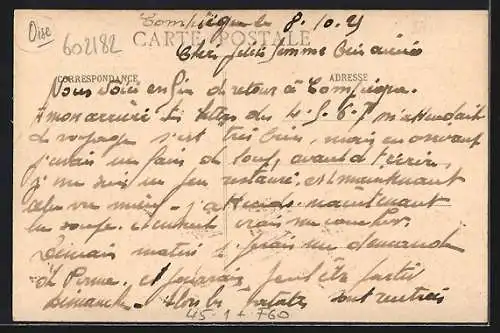 Oise
602182
Compiègne le 8.10.21
CARTE POSTALE
Chère petite femme bien aimée
CORRESPONDANCE
ADRESSE
Nous voici enfin de retour à Compiègne.
A mon arrivée tes lettres des 4.5.6.7 m'attendait
Le voyage s'est très bien, mais en arrivant
j'avais une faim de loup, avant d'écrire,
je me suis un peu restauré. et maintenant
cela va mieux. j'attends maintenant
la soupe. et ensuite vrais me coucher.
Demain matin je ferais ma demande
de Perme. et pourrais peut être partir
Dimanche. Alors les patates sont rentrées
45-1+760